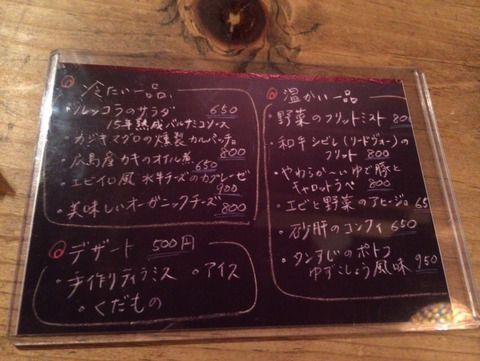 冷たい一品
・ルッコラのサラダ 650
15年熟成バルサミコソース
カジキマグロの燻製カルパッチョ
800
・広島産カキのオイル煮
650
・エビイロ風 水牛チーズのカプレーゼ
900
・美味しいオーガニックチーズ 800
デザート 500円
・手作りティラミス ・アイス
・くだもの
温かい一品
・野菜のフリットミスト 80
・和牛シビレ(リードヴォー)の
フリット 800
・やわらか〜いゆで豚と
キャロットラペ 800
・エビと野菜のアヒージョ 65
・砂肝のコンフィ 650
・タンすじのポトフ
ゆずこしょう風味 950